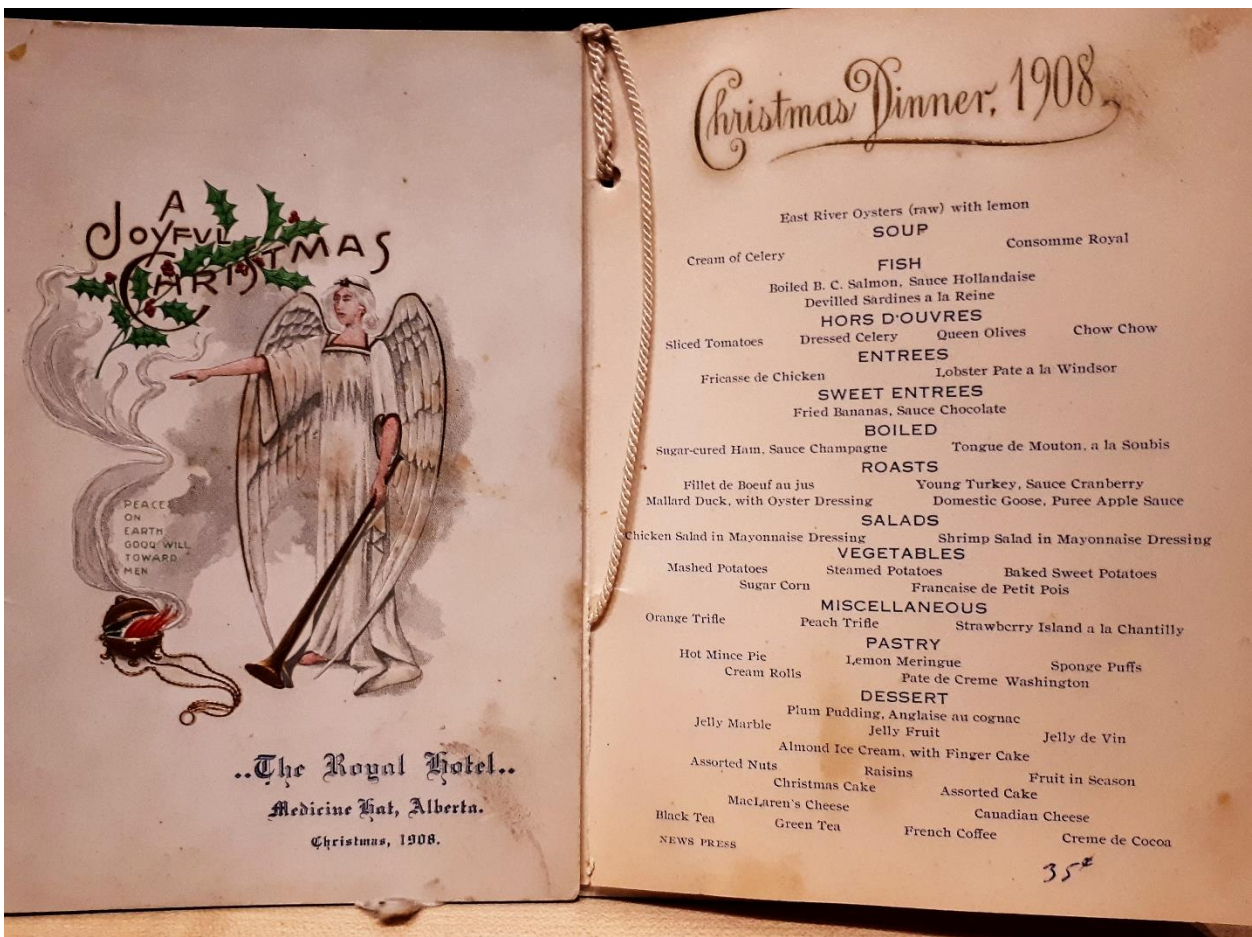 A
JOYFUL
CHRISTMAS
PEACE
ON
EARTH
GOOD WILL
TOWARD
MEN
..The Royal Hotel..
Medicine Hat, Alberta.
Christmas, 1908.
Christmas Dinner, 1908.
East River Oysters (raw) with lemon
SOUP
Cream of Celery Consomme Royal
FISH
Boiled B. C. Salmon, Sauce Hollandaise
Devilled Sardines a la Reine
HORS D'OUVRES
Sliced Tomatoes Dressed Celery Queen Olives Chow Chow
ENTREES
Fricasse de Chicken Lobster Pate a la Windsor
SWEET ENTREES
Fried Bananas, Sauce Chocolate
BOILED
Sugar-cured Ham, Sauce Champagne Tongue de Mouton, a la Soubis
ROASTS
Fillet de Boeuf au jus Young Turkey, Sauce Cranberry
Mallard Duck, with Oyster Dressing Domestic Goose, Puree Apple Sauce
SALADS
Chicken Salad in Mayonnaise Dressing Shrimp Salad in Mayonnaise Dressing
VEGETABLES
Mashed Potatoes Steamed Potatoes Baked Sweet Potatoes
Sugar Corn Francaise de Petit Pois
MISCELLANEOUS
Orange Trifle Peach Trifle Strawberry Island a la Chantilly
PASTRY
Hot Mince Pie Lemon Meringue Sponge Puffs
Cream Rolls Pate de Creme Washington
DESSERT
Plum Pudding, Anglaise au cognac
Jelly Marble Jelly Fruit Jelly de Vin
Almond Ice Cream, with Finger Cake
Assorted Nuts Raisins Fruit in Season
Christmas Cake Assorted Cake
MacLaren's Cheese Canadian Cheese
Black Tea Green Tea French Coffee Creme de Cocoa
NEWS PRESS
35¢